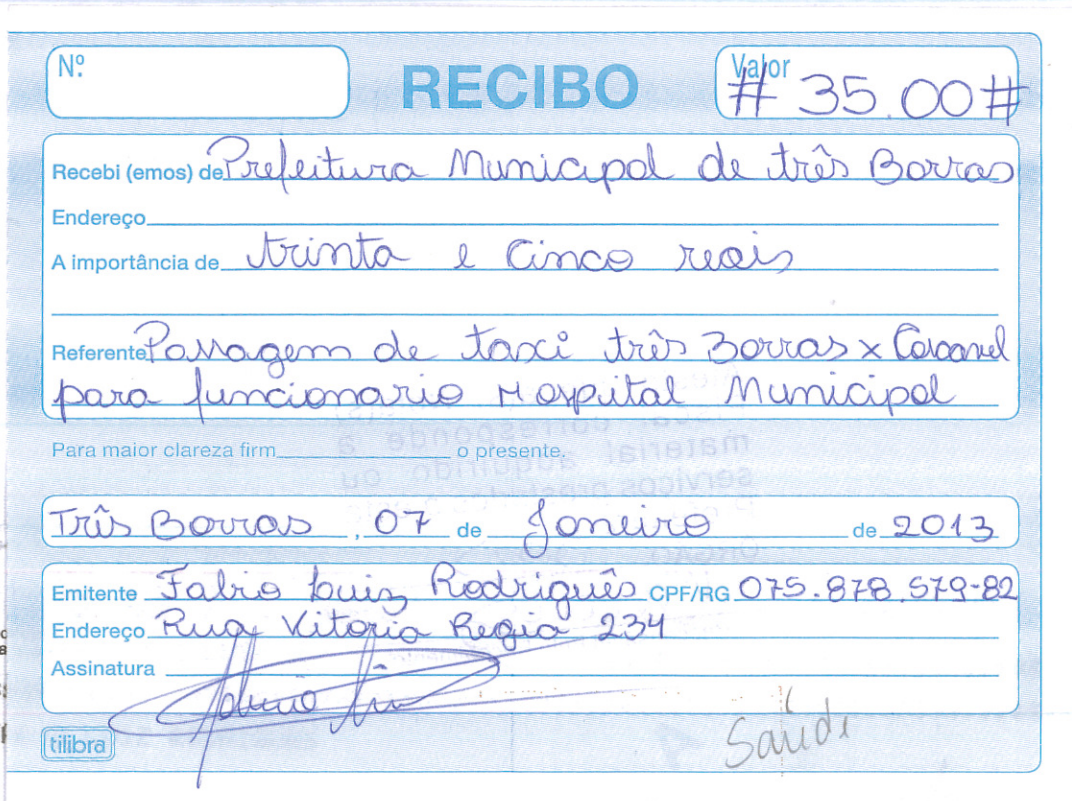 Nº
RECIBO
Valor
# 35.00 #
Recebi (emos) de Prefeitura Municipal de três Barras
Endereço
A importância de trinta e Cinco reais
Referente Passagem de taxi três Barras x Cascavel
para funcionario Hospital Municipal
Para maior clareza firm o presente.
Três Barras, 07 de Janeiro de 2013
Emitente Fabio Luiz Rodriguês CPF/RG 075.878.579-82
Endereço Rua Vitoria Regia 234
Assinatura
tilibra
Saúde